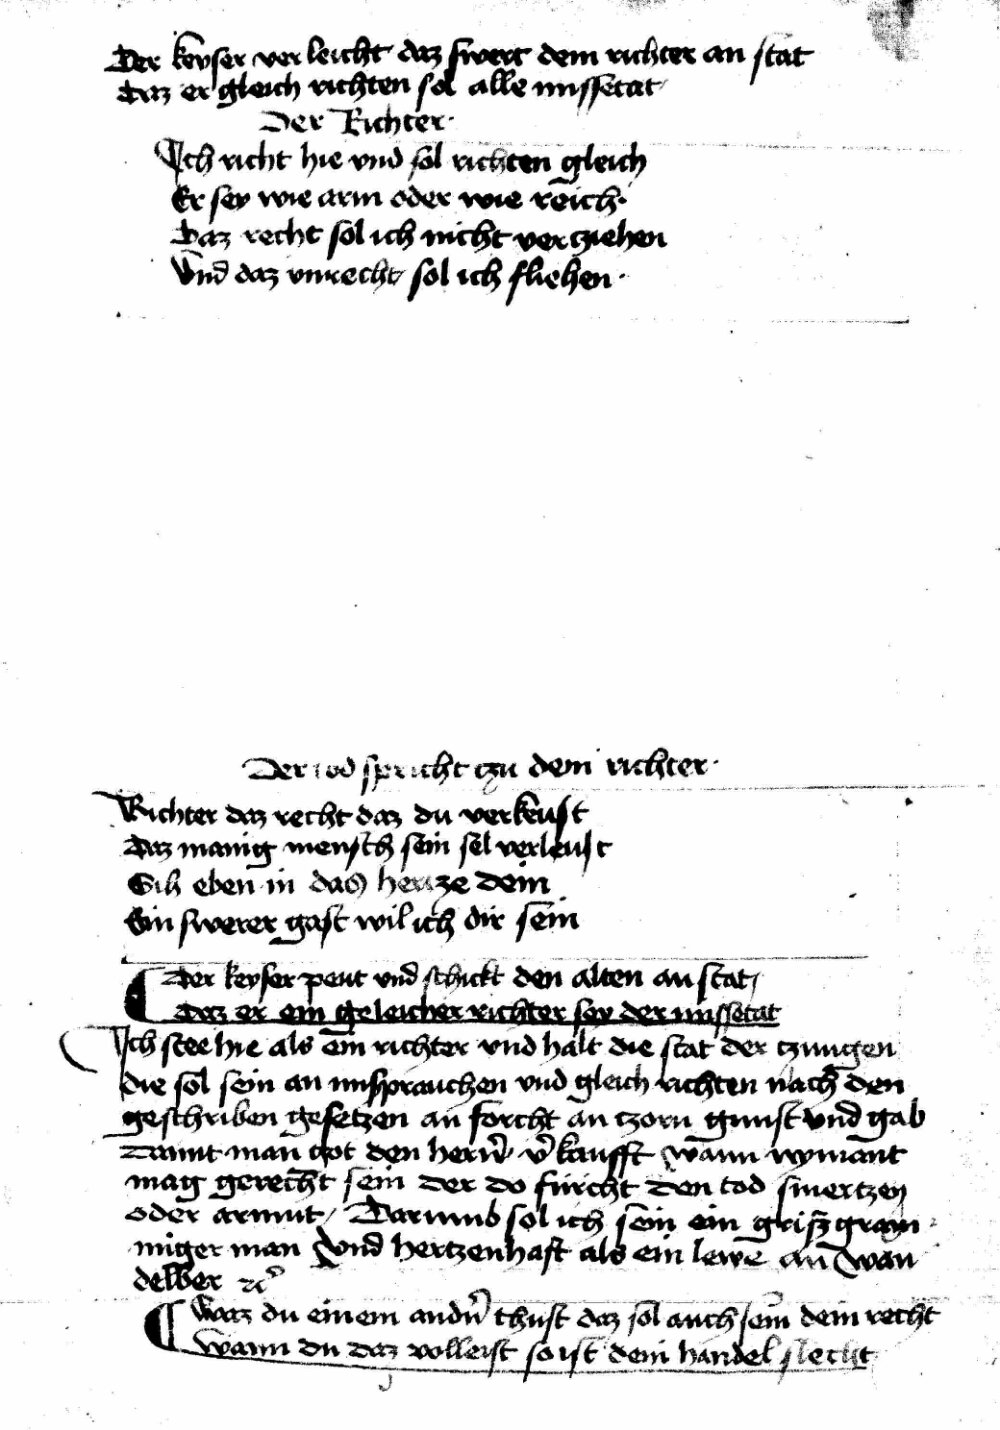 Der keyser verleicht daz swert dem richter an stat
Daz er gleich richten sol alle missetat
Der Richter
Ich richt hie vnd sol richten gleich
Er sey wie arm oder wie reich
Daz recht sol ich nicht verziehen
Vnd daz vnrecht sol ich fliehen
Der tod spricht czu dem richter
Richter daz recht daz du verkeust
Daz manig mensch sein sel verleust
Gib eben in das hertze dein
Ein swerer gast wil ich dir sein
Der keyser peut vnd schickt den alten an stat
Daz er ein geleicher richter sey der missetat
Ich stee hie als ein richter vnd halt die stat der czungen
die sol sein an missprauchen vnd gleich richten nach den
geschriben gesetzen an forcht an czorn gunst vnd gab
Damit man got den hern̄ v̄kaufft wann nymant
mag gerecht sein der do fürcht den tod smertzen
oder armut Darumb sol ich sein ein grißgram
miger man Vnd hertzenhaft als ein lewe an wan
delber ꝛc̄
Waz du einem andn̄ thust daz sol auch sein dein recht
Wann du daz volleist so ist dein handel slecht